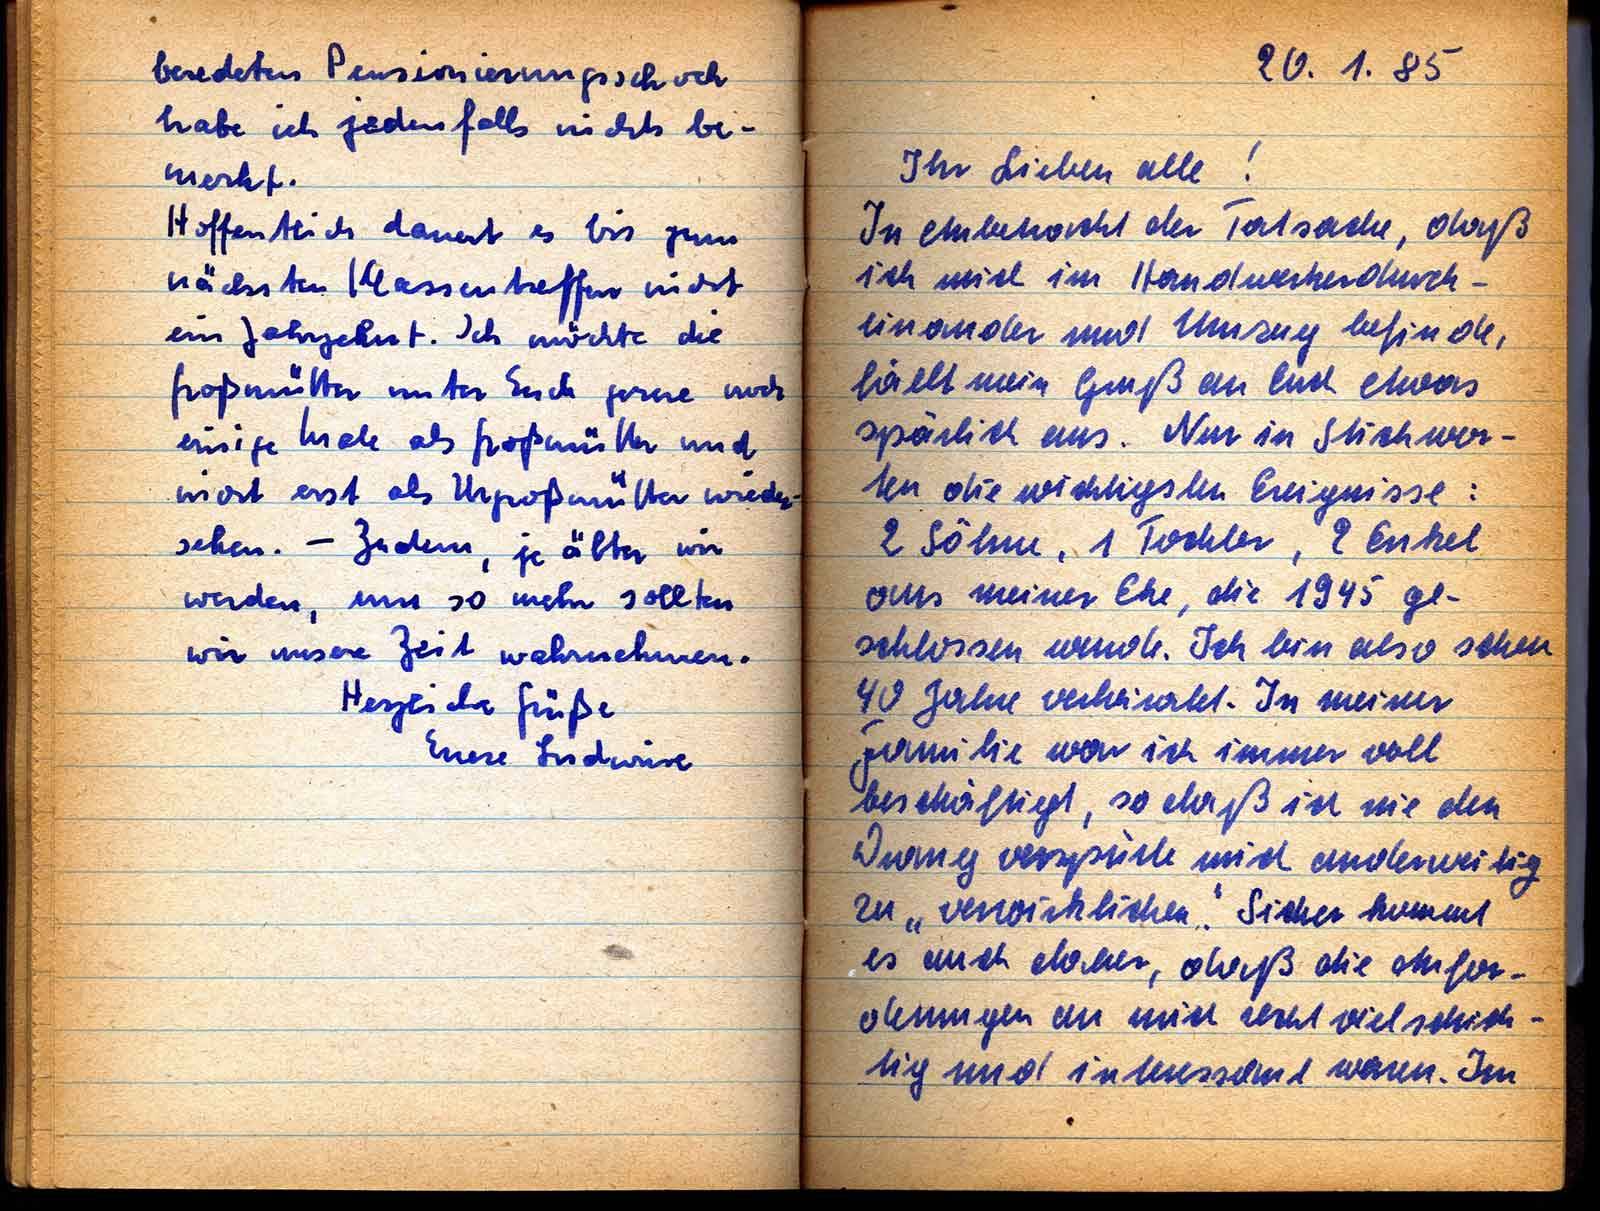 beredeten Pensionierungsschock
habe ich jedenfalls nichts be-
merkt.
Hoffentlich dauert es bis zum
nächsten Klassentreffen nicht
ein Jahrzehnt. Ich möchte die
Großmütter unter Euch gerne noch
einige Male als Großmütter und
nicht erst als Urgroßmütter wieder-
sehen. — Zudem, je älter wir
werden, um so mehr sollten
wir unsere Zeit wahrnehmen.
Herzliche Grüße
Eure
20. 1. 85
Ihr Lieben alle !
In Anbetracht der Tatsache, daß
ich mich im Handwerkerdurch-
einander und Umzug befinde,
fällt mein Gruß an Euch etwas
spärlich aus. Nur in Stichwor-
ten die wichtigsten Ereignisse :
2 Söhne, 1 Tochter, 2 Enkel
aus meiner Ehe, die 1945 ge-
schlossen wurde. Ich bin also schon
40 Jahre verheiratet. In meiner
Familie war ich immer voll
beschäftigt, so daß ich nie den
Drang verspürte mich anderweitig
zu „verwirklichen". Sicher kommt
es auch daher, daß die Anfor-
derungen an mich recht vielschich-
tig und interessant waren. Im